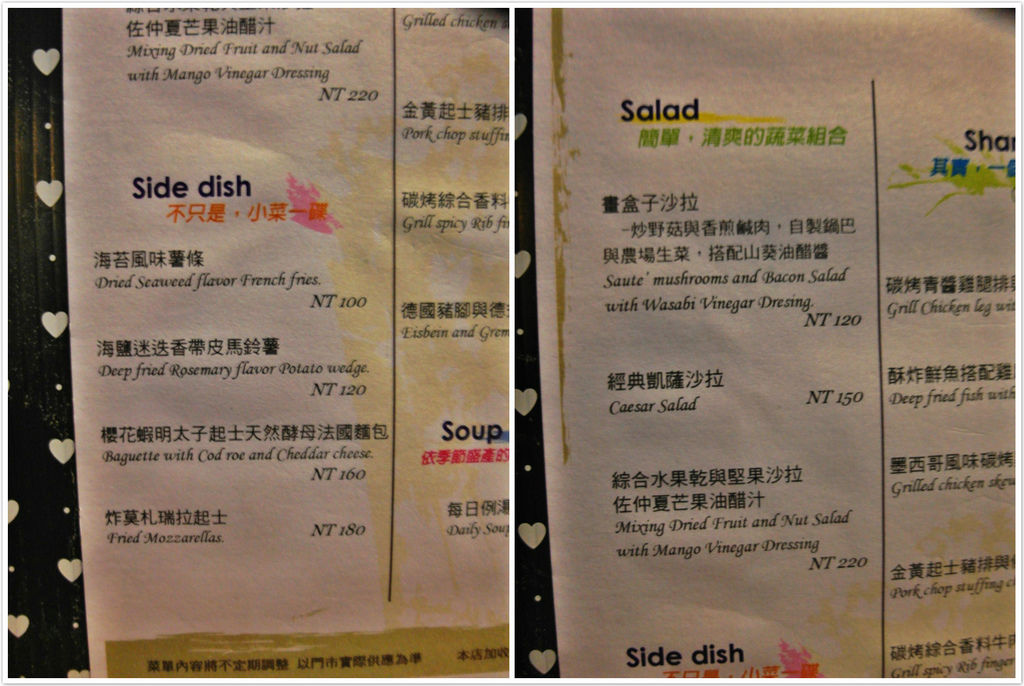 佐仲夏芒果油醋汁
Mixing Dried Fruit and Nut Salad
with Mango Vinegar Dressing
NT 220
Side dish
不只是，小菜一碟
海苔風味薯條
Dried Seaweed flavor French fries.
NT 100
海鹽迷迭香帶皮馬鈴薯
Deep fried Rosemary flavor Potato wedge.
NT 120
櫻花蝦明太子起士天然酵母法國麵包
Baguette with Cod roe and Cheddar cheese.
NT 160
炸莫札瑞拉起士
Fried Mozzarellas.
NT 180
Grilled chicken
金黃起士豬排
Pork chop
碳烤綜合香料
Grill spicy Rib
德國豬腳與德
Eisbein and
Soup
依季節盛產的
每日例湯
Daily Soup
菜單內容將不定期調整 以門市實際供應為準
本店加收
Salad
簡單，清爽的蔬菜組合
畫盒子沙拉
-炒野菇與香煎鹹肉，自製鍋巴
與農場生菜，搭配山葵油醋醬
Saute' mushrooms and Bacon Salad
with Wasabi Vinegar Dresing.
NT 120
經典凱薩沙拉
Caesar Salad
NT 150
綜合水果乾與堅果沙拉
佐仲夏芒果油醋汁
Mixing Dried Fruit and Nut Salad
with Mango Vinegar Dressing
NT 220
Side dish
不只是，小菜一碟
其實，一
碳烤青醬雞腿排
Grill Chicken leg
酥炸鮮魚搭配
Deep fried fish with
墨西哥風味碳烤
Grilled chicken
金黃起士豬排與
Pork chop stuffing
碳烤綜合香料牛
Grill spicy Rib finger